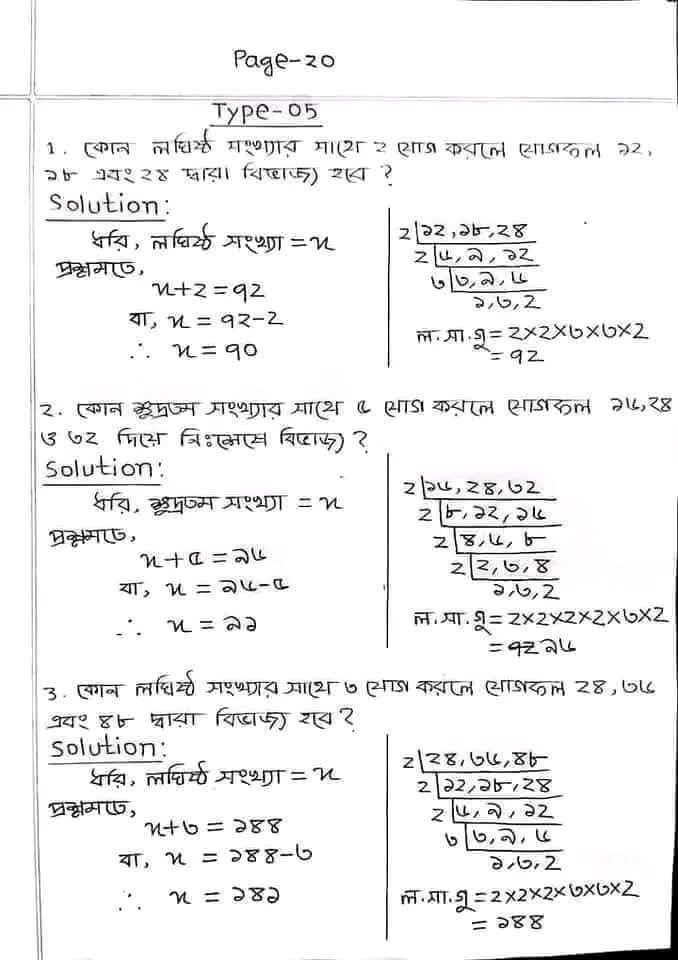 Page-20
Type-05
1. কোন লঘিষ্ঠ সংখ্যার সাথে ২ যোগ করলে যোগফল ১২,
১৮ এবং ২৪ দ্বারা বিভাজ্য হবে ?
Solution:
ধরি, লঘিষ্ঠ সংখ্যা = x
প্রশ্নমতে,
x+২ = ৭২
বা, x = ৭২-২
∴ x = ৭০
২ | ১২, ১৮, ২৪
২ | ৬, ৯, ১২
৩ | ৩, ৯, ৬
১, ৩, ২
ল.সা.গু = ২×২×৩×৩×২
= ৭২
২. কোন ক্ষুদ্রতম সংখ্যার সাথে ৫ যোগ করলে যোগফল ১৬, ২৪
ও ৩২ দিয়ে নিঃশেষে বিভাজ্য ?
Solution:
ধরি, ক্ষুদ্রতম সংখ্যা = x
প্রশ্নমতে,
x+৫ = ৯৬
বা, x = ৯৬-৫
∴ x = ৯১
২ | ১৬, ২৪, ৩২
২ | ৮, ১২, ১৬
২ | ৪, ৬, ৮
২ | ২, ৩, ৪
১, ৩, ২
ল.সা.গু = ২×২×২×২×৩×২
= ৯৬
3. কোন লঘিষ্ঠ সংখ্যার সাথে ৩ যোগ করলে যোগফল ২৪, ৩৬
এবং ৪৮ দ্বারা বিভাজ্য হবে ?
Solution:
ধরি, লঘিষ্ঠ সংখ্যা = x
প্রশ্নমতে,
x+৩ = ১৪৪
বা, x = ১৪৪-৩
∴ x = ১৪১
২ | ২৪, ৩৬, ৪৮
২ | ১২, ১৮, ২৪
২ | ৬, ৯, ১২
৩ | ৩, ৯, ৬
১, ৩, ২
ল.সা.গু = ২×২×২×৩×৩×২
= ১৪৪